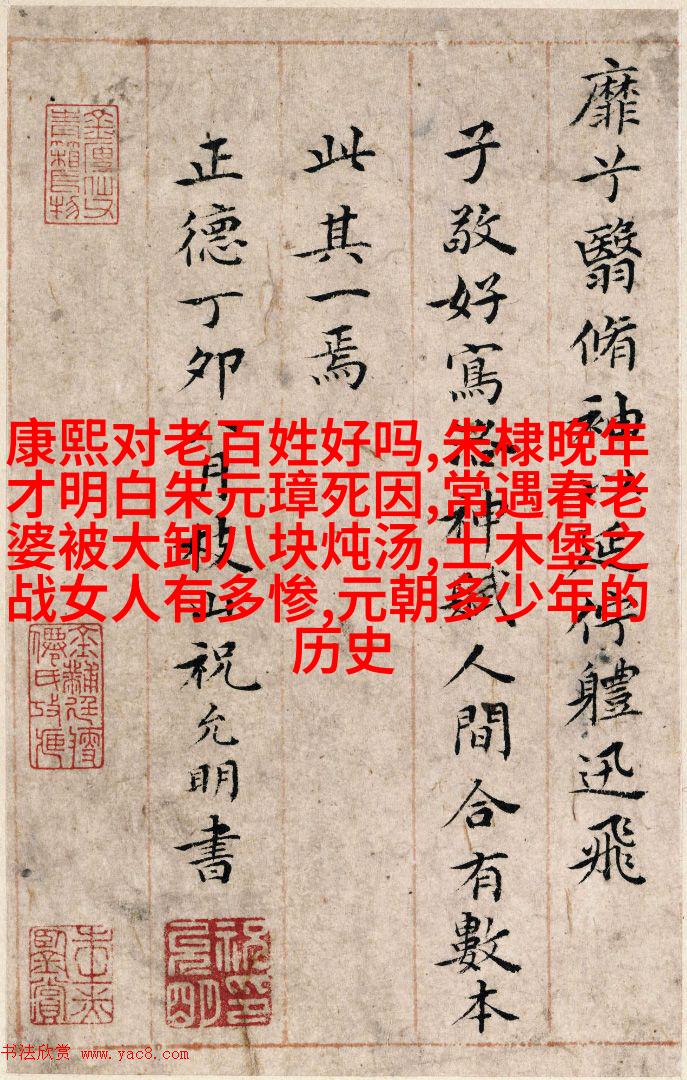 靡兮翳脩袖以延佇體迅飛
子敬好寫洛神賦人間合有數本
此其一焉
正德丁卯月枝山祝允明書
康熙对老百姓好吗,朱棣晚年
才明白朱元璋死因,常遇春老
婆被大卸八块炖汤,土木堡之
战女人有多惨,元朝多少年的
历史
书法欣赏 www.yac8.com